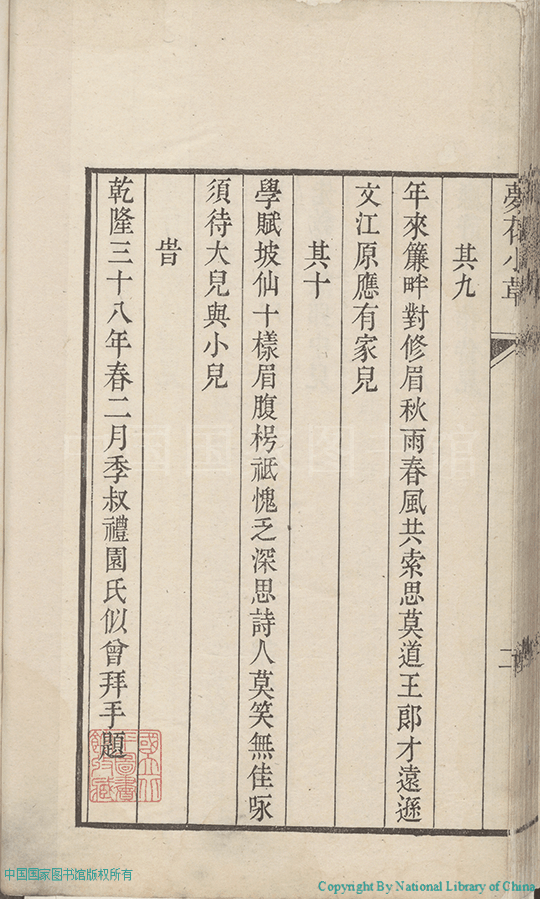 夢花小草
其九
年來簾畔對修眉秋雨春風共索思莫道王郎才遠遜
文江原應有家兒
其十
學賦坡仙十樣眉腹枵祗愧乏深思詩人莫笑無佳咏
須待大兒與小兒
旹
乾隆三十八年春二月季叔禮園氏似曾拜手題
二
中国国家图书馆
中国国家图书馆版权所有
Copyright By National Library of China